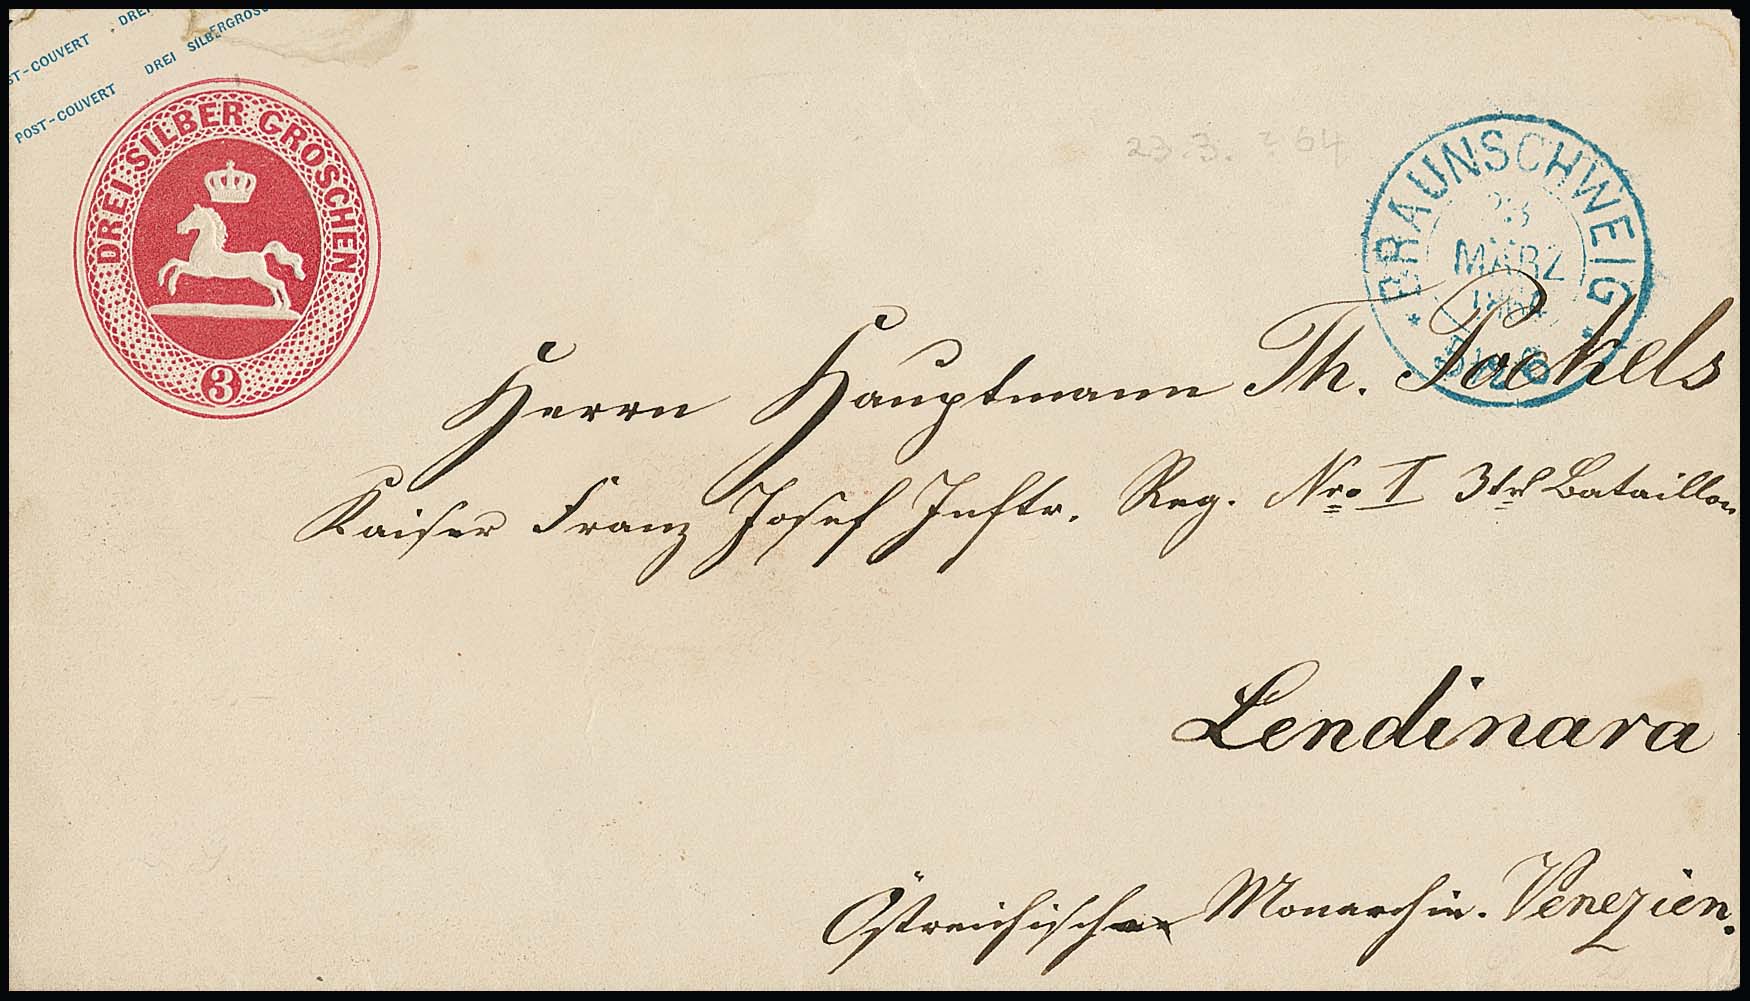 POST-COUVERT DREI SILBERGROSCH
ST-COUVERT DREI
DREI SILBER GROSCHEN
3
23.3. ? 64
BRAUNSCHWEIG
23
MÄRZ
1864
Herrn Hauptmann Th. Pockels
Kaiser Franz Josef Inftr. Reg. Nro I 3tes Bataillon
Lendinara
Östreichische Monarchie. Venezien.